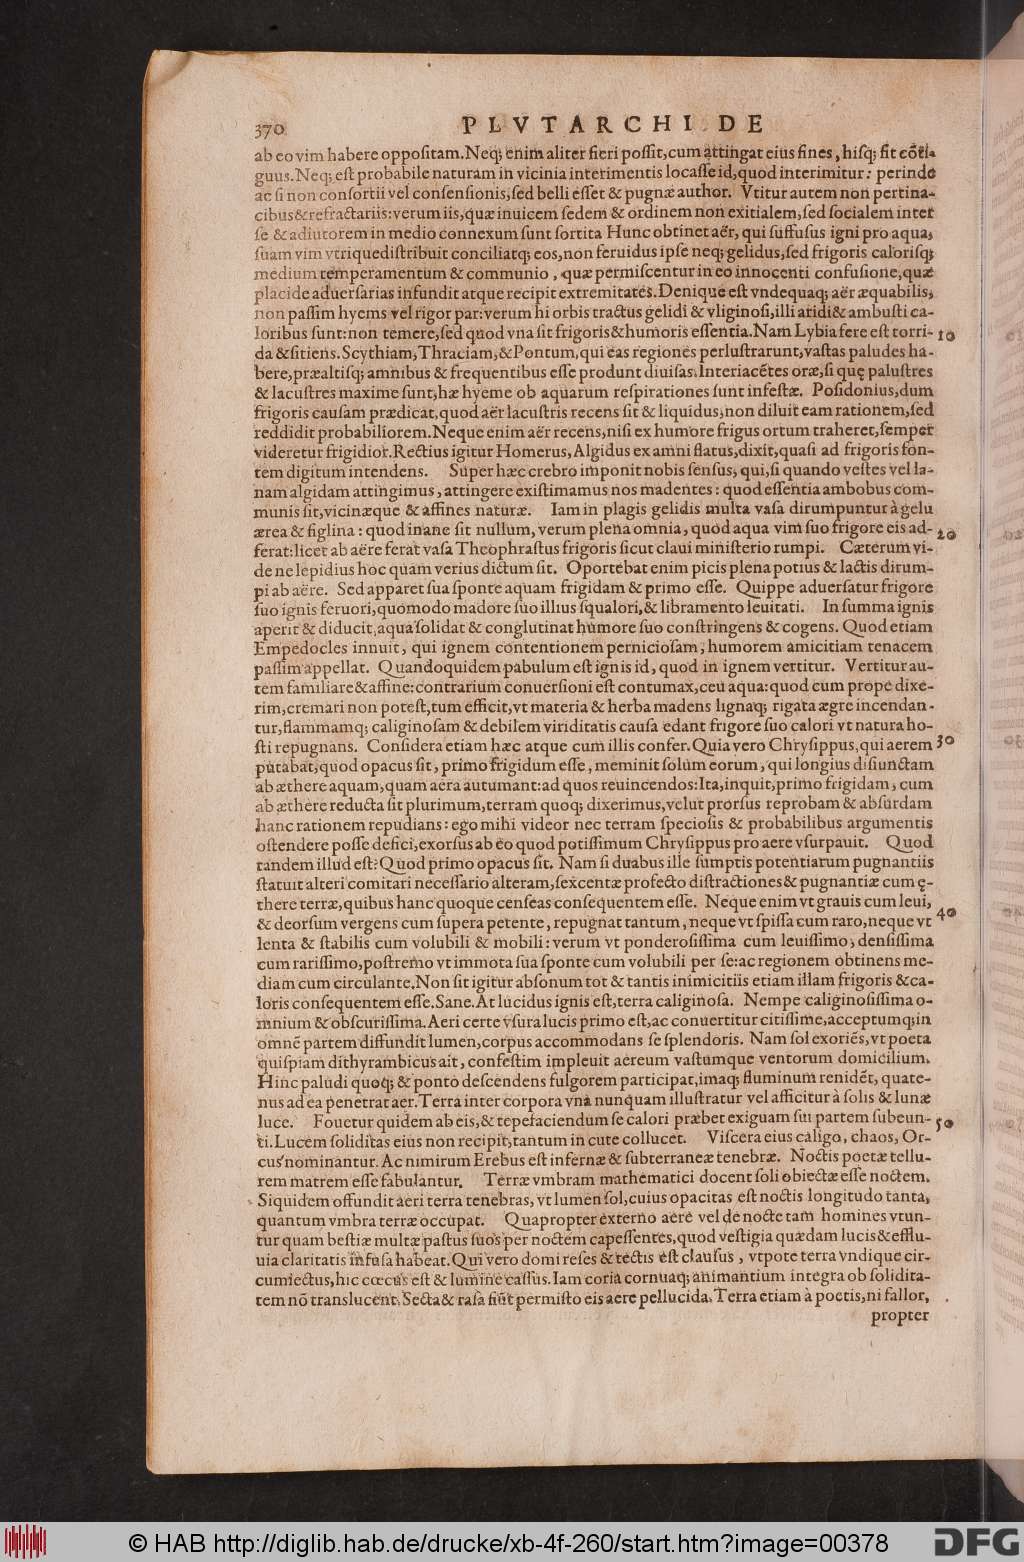 370 PLVTARCHI DE
ab eo vim habere oppositam. Neq; enim aliter fieri possit, cum attingat eius fines, hisq; sit cōti-
guus. Neq; est probabile naturam in vicinia interimentis locasse id, quod interimitur: perinde
ac si non consortii vel consensionis, sed belli esset & pugnæ author. Vtitur autem non pertina-
cibus & refractariis: verum iis, quæ inuicem sedem & ordinem non exitialem, sed socialem inter
se & adiutorem in medio connexum sunt sortita Hunc obtinet aër, qui suffusus igni pro aqua,
suam vim vtrique distribuit conciliatq; eos, non feruidus ipse neq; gelidus, sed frigoris calorisq;
medium temperamentum & communio, quæ permiscentur in eo innocenti confusione, quæ
placide aduersarias infundit atque recipit extremitates. Denique est vndequaq; aër æquabilis,
non passim hyems vel rigor par: verum hi orbis tractus gelidi & vliginosi, illi aridi & ambusti ca-
loribus sunt: non temere, sed quod vna sit frigoris & humoris essentia. Nam Lybia fere est torri- 10
da & sitiens. Scythiam, Thraciam, & Pontum, qui eas regiones perlustrarunt, vastas paludes ha-
bere, præaltisq; amnibus & frequentibus esse produnt diuisas. Interiacētes oræ, si quę palustres
& lacustres maxime sunt, hæ hyeme ob aquarum respirationes sunt infestæ. Posidonius, dum
frigoris causam prædicat, quod aër lacustris recens sit & liquidus, non diluit eam rationem, sed
reddidit probabiliorem. Neque enim aër recens, nisi ex humore frigus ortum traheret, semper
videretur frigidior. Rectius igitur Homerus, Algidus ex amni flatus, dixit, quasi ad frigoris fon-
tem digitum intendens. Super hæc crebro imponit nobis sensus, qui, si quando vestes vel la-
nam algidam attingimus, attingere existimamus nos madentes: quod essentia ambobus com-
munis sit, vicinæque & affines naturæ. Iam in plagis gelidis multa vasa dirumpuntur à gelu
ærea & figlina: quod inane sit nullum, verum plena omnia, quod aqua vim suo frigore eis ad- 20
ferat: licet ab aëre ferat vasa Theophrastus frigoris sicut claui ministerio rumpi. Cæterum vi-
de ne lepidius hoc quam verius dictum sit. Oportebat enim picis plena potius & lactis dirum-
pi ab aëre. Sed apparet sua sponte aquam frigidam & primo esse. Quippe aduersatur frigore
suo ignis feruori, quomodo madore suo illius squalori, & libramento leuitati. In summa ignis
aperit & diducit, aqua solidat & conglutinat humore suo constringens & cogens. Quod etiam
Empedocles innuit, qui ignem contentionem perniciosam, humorem amicitiam tenacem
passim appellat. Quandoquidem pabulum est ignis id, quod in ignem vertitur. Vertitur au-
tem familiare & affine: contrarium conuersioni est contumax, ceu aqua: quod cum prope dixe-
rim, cremari non potest, tum efficit, vt materia & herba madens lignaq; rigata ægre incendan-
tur, flammamq; caliginosam & debilem viriditatis causa edant frigore suo calori vt natura ho-
sti repugnans. Considera etiam hæc atque cum illis confer. Quia vero Chrysippus, qui aerem 30
putabat, quod opacus sit, primo frigidum esse, meminit solum eorum, qui longius disiunctam
ab æthere aquam, quam aera autumant: ad quos reuincendos: Ita, inquit, primo frigidam, cum
ab æthere reducta sit plurimum, terram quoq; dixerimus, velut prorsus reprobam & absurdam
hanc rationem repudians: ego mihi videor nec terram speciosis & probabilibus argumentis
ostendere posse defici, exorsus ab eo quod potissimum Chrysippus pro aere vsurpauit. Quod
tandem illud est? Quod primo opacus sit. Nam si duabus ille sumptis potentiarum pugnantiis
statuit alteri comitari necessario alteram, sexcentæ profecto distractiones & pugnantiæ cum ę-
there terræ, quibus hanc quoque censeas consequentem esse. Neque enim vt grauis cum leui,
& deorsum vergens cum supera petente, repugnat tantum, neque vt spissa cum raro, neque vt 40
lenta & stabilis cum volubili & mobili: verum vt ponderosissima cum leuissimo, densissima
cum rarissimo, postremo vt immota sua sponte cum volubili per se: ac regionem obtinens me-
diam cum circulante. Non sit igitur absonum tot & tantis inimicitiis etiam illam frigoris & ca-
loris consequentem esse. Sane. At lucidus ignis est, terra caliginosa. Nempe caliginosissima o-
mnium & obscurissima. Aeri certe vsura lucis primo est, ac conuertitur citissime, acceptumq; in
omnē partem diffundit lumen, corpus accommodans se splendoris. Nam sol exoriēs, vt poeta
quispiam dithyrambicus ait, confestim impleuit aereum vastumque ventorum domicilium.
Hinc paludi quoq; & ponto descendens fulgorem participat, imaq; fluminum renidēt, quate-
nus ad ea penetrat aer. Terra inter corpora vna nunquam illustratur vel afficitur à solis & lunæ
luce. Fouetur quidem ab eis, & tepefaciendum se calori præbet exiguam sui partem subeun- 50
ti. Lucem soliditas eius non recipit, tantum in cute collucet. Viscera eius caligo, chaos, Or-
cus nominantur. Ac nimirum Erebus est infernæ & subterraneæ tenebræ. Noctis poetæ tellu-
rem matrem esse fabulantur. Terræ vmbram mathematici docent soli obiectæ esse noctem.
Siquidem offundit aeri terra tenebras, vt lumen sol, cuius opacitas est noctis longitudo tanta,
quantum vmbra terræ occupat. Quapropter externo aere vel de nocte tam homines vtun-
tur quam bestiæ multæ pastus suos per noctem capessentes, quod vestigia quædam lucis & efflu-
uia claritatis infusa habeat. Qui vero domi reses & tectis est clausus, vtpote terra vndique cir-
cumiectus, hic cœcus est & lumine cassus. Iam coria cornuaq; animantium integra ob solidita-
tem nō translucent. Secta & rasa fiūt permisto eis aere pellucida. Terra etiam à poetis, ni fallor,
propter
© HAB http://diglib.hab.de/drucke/xb-4f-260/start.htm?image=00378 DFG